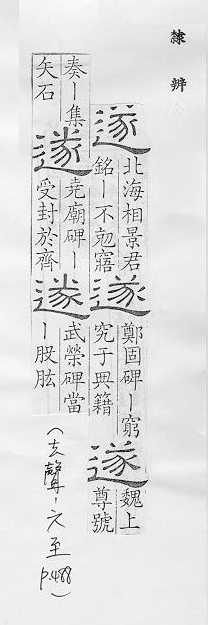 隸辨
遂
北海相景君
銘ー不勊寤
遂
鄭固碑ー窮
究于典籍
遂
魏上
尊號
奏ー集
矢石
遂
堯廟碑ー
受封於齊
遂
武榮碑當
ー股肱
(去聲-六至 p.488)